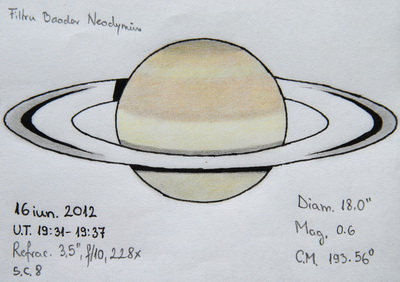 Filtru Baader Neodymium
16 iun. 2012
U.T. 19:31-19:37
Refrac. 3,5", f/10, 228x
S.C. 8
Diam. 18.0"
Mag. 0.6
C.M. 193.56°